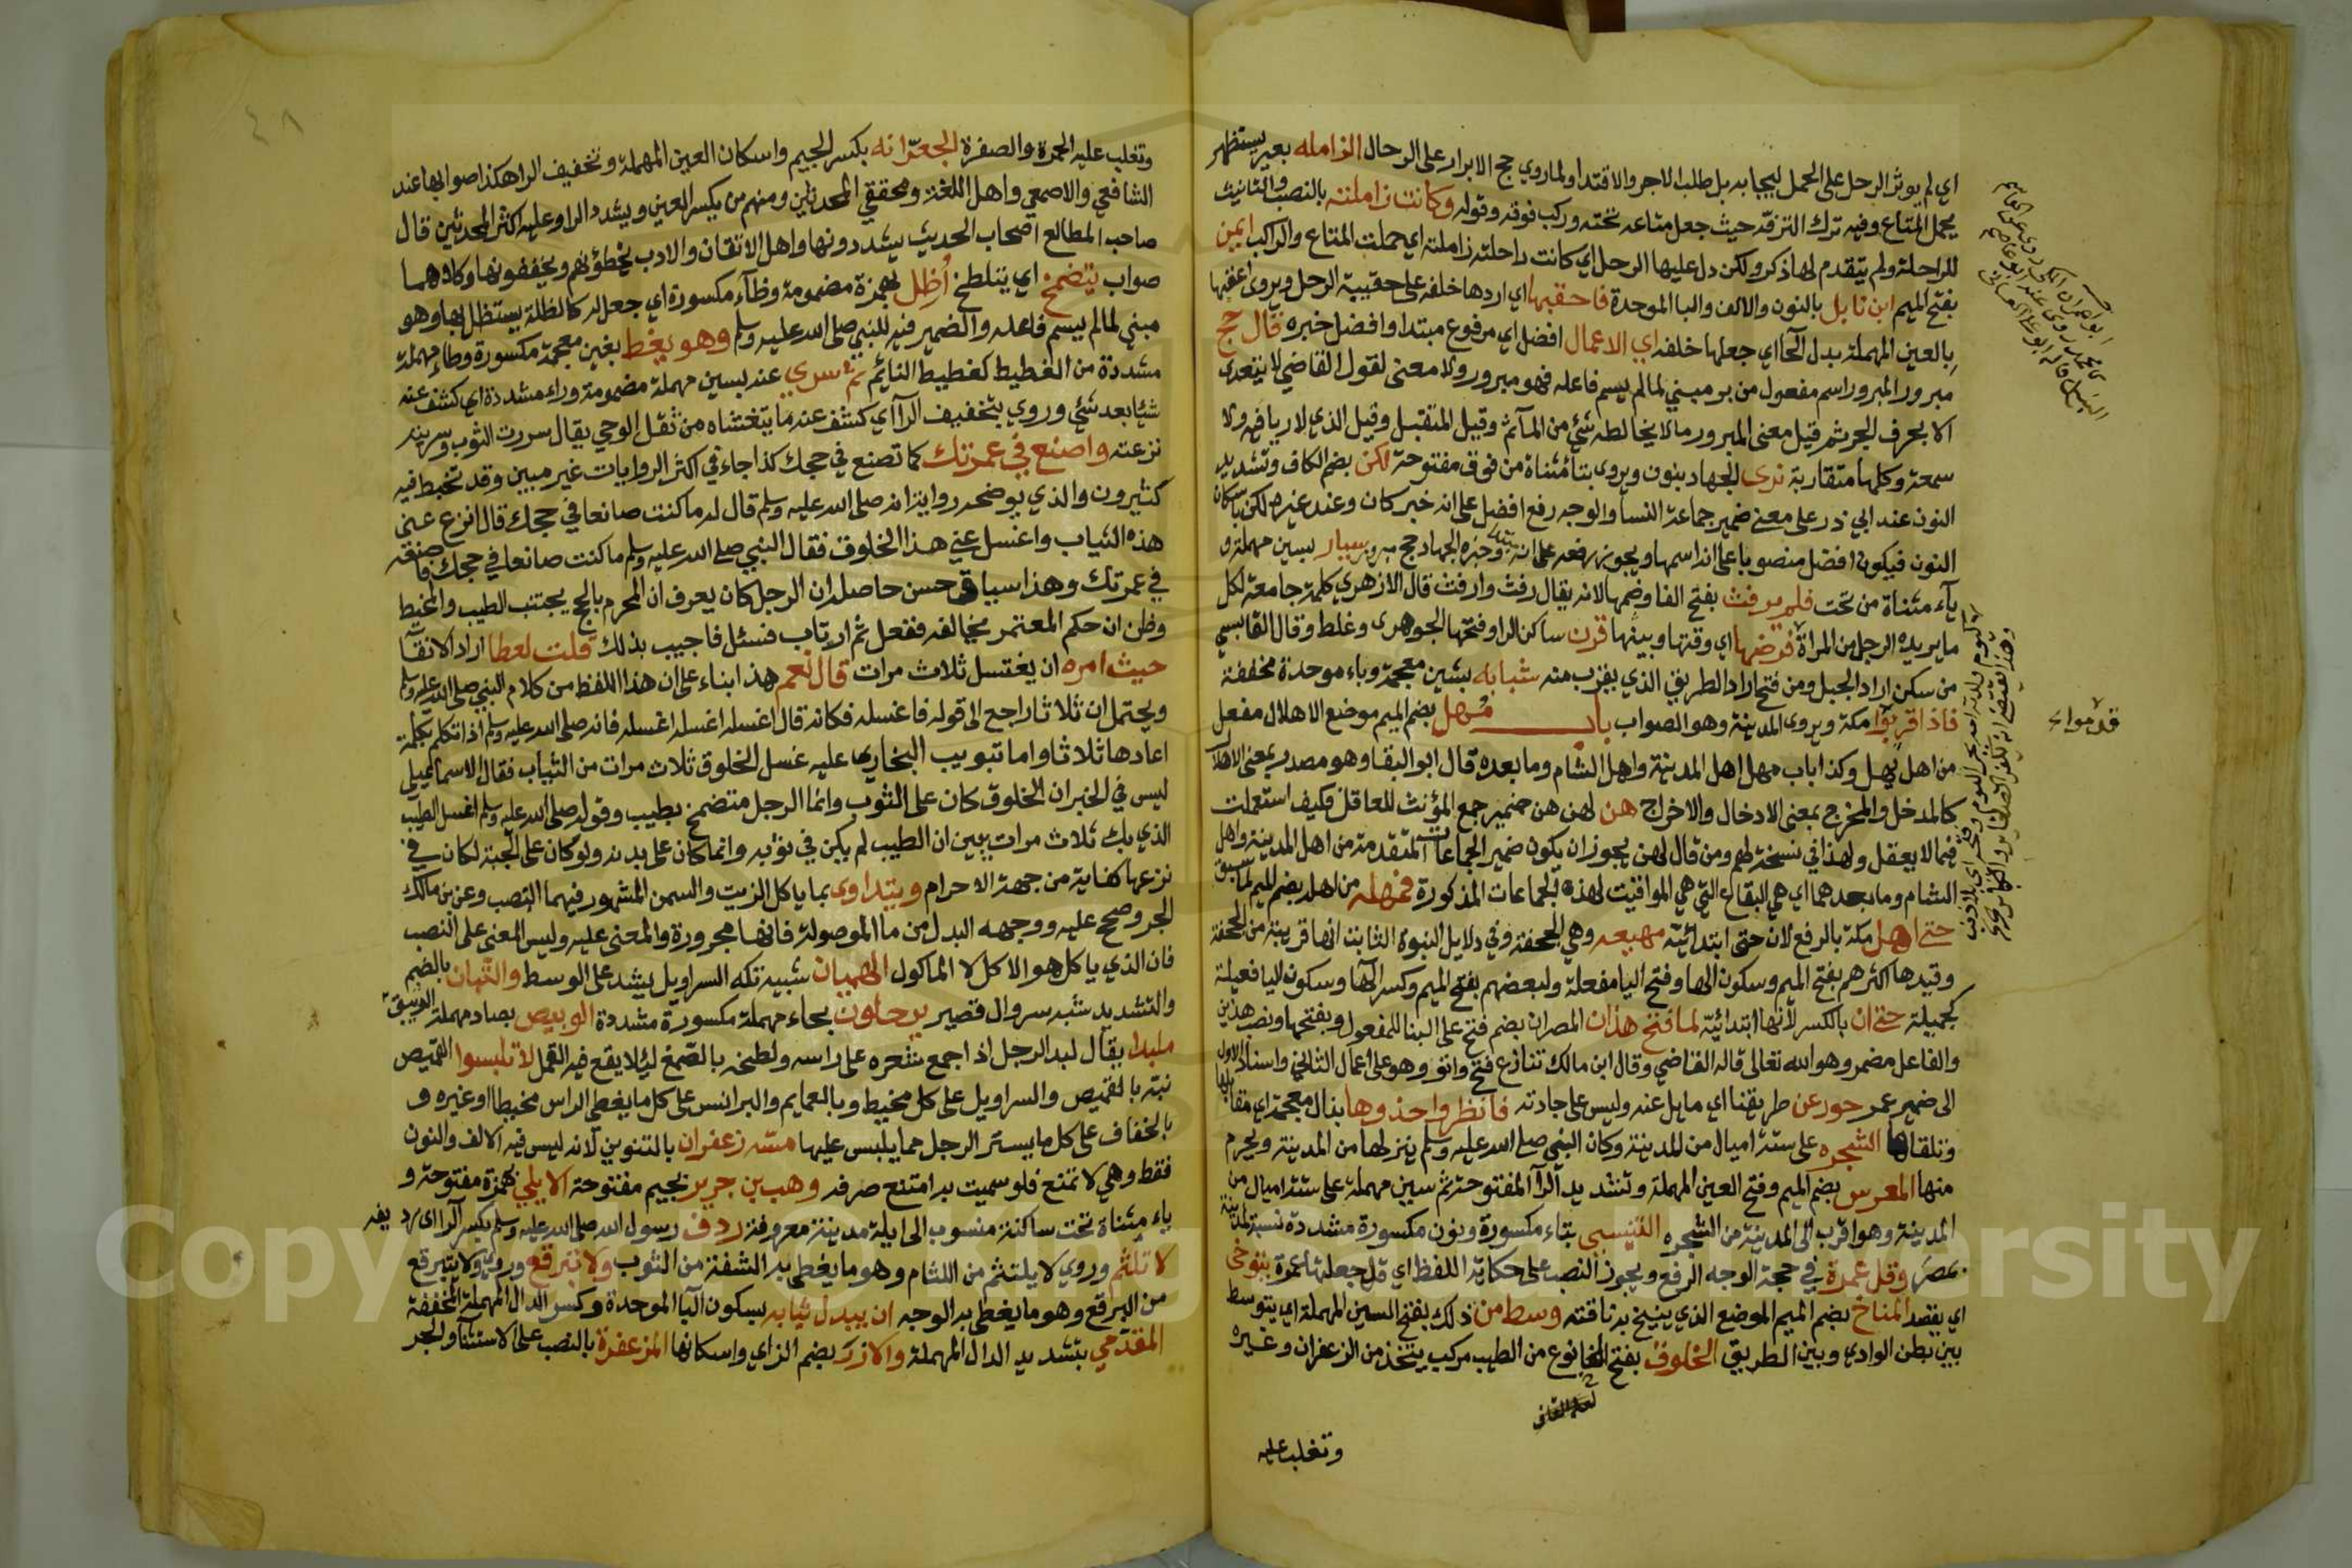 اي لم يوثر الرحل على الحمل ليجيا به بل طلب الاجر والاقتدا ولما روي حج الابرار على الرحال الزامله بعير يستظهر
يحمل المتاع وفيه ترك الترفه حيث جعل متاعه تحته وركب فوقه وقوله وكانت زاملته بالنصب والتانيث
للراحلة ولم يتقدم لها ذكر ولكن دل عليها الرحل اي كانت راحلته زاملته اي حملت المتاع والراكب ايمن
بفتح الميم ابن نابل بالنون والالف والبا الموحدة فاحقبها اي اردها خلفه على حقيبة الرحل ويروى اعقبها
بالعين المهملة بدل الحا اي جعلها خلفه اي الاعمال افضل اي مرفوع مبتدا وافضل خبره قال حج
مبرور المبرور اسم مفعول من بر مبني لما لم يسم فاعله فهو مبرور ولا معنى لقول القاضي لا يتعدى
الا بحرف الجر ثم قيل معنى المبرور ما لا يخالطه شئ من المآثم وقيل المتقبل وقيل الذي لا ريا فيه ولا
سمعة وكلها متقاربة نرى الجهاد بنون ويروى بتا مثناة من فوق مفتوحة لكن بضم الكاف وتشديد
النون عند ابي ذر على معنى ضمير جماعة النسا والوجه رفع افضل على انه خبر كان وعند غيره لكن باسكان
النون فيكون افضل منصوبا على انه اسمها ويجوز رفعه على انه مبتدا وخبره الجهاد حج مبرور سيار بسين مهملة و
ياء مثناة من تحت فلم يرفث بفتح الفا وضمها لانه يقال رفث وارفث قال الازهري كلمة جامعة لكل
ما يريده الرجل من المراة فرضها اي وقتها وبينها قرن ساكن الرا وفتحها الجوهرى وغلط وقال القابسي
من سكن اراد الجبل ومن فتح اراد الطريق الذي يقرب منه شبابه بشين معجمة وباء موحدة مخففة
فاذا قربوا مكة ويروى المدينة وهو الصواب باب مُهل بضم الميم موضع الاهلال مفعل
من اهل يهل وكذا باب مهل اهل المدينة واهل الشام وما بعده قال ابو البقا وهو مصدر بمعنى الاهلال
كالمدخل والمخرج بمعنى الادخال والاخراج هن لهن هن ضمير جمع المؤنث للعاقل فكيف استعملت
فيما لا يعقل ولهذا في نسخة لهم ومن قال لهن يجوز ان يكون ضمير الجماعات المتقدمة من اهل المدينة واهل
الشام وما بعدهما اي هي البقاع التي هي المواقيت لهذه الجماعات المذكورة فمهله من اهله بضم الميم لما سبق
حتى اهل مكة بالرفع لان حتى ابتدائية مهيعه وهي الجحفة وفي دلايل النبوة الثابت انها قرية من الجحفة
وقيدها اكثرهم بفتح الميم وسكون الها وفتح اليا مفعلة ولبعضهم بفتح الميم وكسر الها وسكون اليا فعيلة
كجميلة حتى ان بالكسر لانها ابتدائية لما فتح هذان المصران بضم فتح على البنا للمفعول وبفتحها ونصب هذين
والفاعل مضمر وهو الله تعالى قاله القاضي وقال ابن مالك تنازع فتح واتو وهو على اعمال الثاني واسناد الاول
الى ضمير عمر جور عن طريقنا اي مايل عنه وليس على جادته فانظروا حذوها بذال معجمة اي مقابلها
وتلقاها الشجره على ستة اميال من المدينة وكان النبي صلى الله عليه وسلم ينزلها من المدينة ويحرم
منها المعرس بضم الميم وفتح العين المهملة وتشديد الرا المفتوحة ثم سين مهملة على ستة اميال من
المدينة وهو اقرب الى المدينة من الشجره التنيسي بتاء مكسورة ونون مكسورة مشددة نسبة لمدينة
بمصر وقل عمرة في حجة الوجه الرفع ويجوز النصب على حكاية اللفظ اي قل جعلتها عمرة يتوخى
اي يقصد المناخ بضم الميم الموضع الذي ينيخ به ناقته وسط من ذلك بفتح السين المهملة اي يتوسط
بين بطن الوادي وبين الطريق الخلوق بفتح الخا نوع من الطيب مركب يتخذ من الزعفران وغيره
وتغلب عليه
وتغلب عليه الحمرة والصفرة الجعرانه بكسر الجيم واسكان العين المهملة وتخفيف الرا هكذا صوابها عند
الشافعي والاصمعي واهل اللغة ومحققي المحدثين ومنهم من يكسر العين ويشدد الرا وعليه اكثر المحدثين قال
صاحب المطالع اصحاب الحديث يشددونها واهل الاتقان والادب يخطؤنهم ويخففونها وكلاهما
صواب يتضمخ اي يتلطخ أُظِل بهمزة مضمومة وظآء مكسورة اي جعل له كالظلة يستظل بها وهو
مبني لما لم يسم فاعله والضمير فيه للنبي صلى الله عليه وسلم وهو يغط بغين معجمة مكسورة وطاء مهملة
مشددة من الغطيط كغطيط النائم ثم سري عنه بسين مهملة مضمومة وراء مشددة اي كشف عنه
شيئا بعد شئ وروي بتخفيف الرا اي كشف عنه ما يتغشاه من ثقل الوحي يقال سررت الثوب وسريته
نزعته واصنع في عمرتك كما تصنع في حجك كذا جاء في اكثر الروايات غير مبين وقد تخبط فيه
كثيرون والذي يوضحه رواية انه صلى الله عليه وسلم قال له ما كنت صانعا في حجك قال انزع عني
هذه الثياب واغسل عني هذا الخلوق فقال النبي صلى الله عليه وسلم ما كنت صانعا في حجك فاصنعه
في عمرتك وهذا سياق حسن حاصله ان الرجل كان يعرف ان المحرم بالحج يجتنب الطيب والمخيط
وظن ان حكم المعتمر مخالفه ففعل ثم ارتاب فسئل فاجيب بذلك قلت لعطا اراد الانقآ
حيث امره ان يغتسل ثلاث مرات قال نعم هذا بناء على ان هذا اللفظ من كلام النبي صلى الله عليه وسلم
ويحتمل ان ثلاثا راجع الى قوله فاغسله فكانه قال اغسله اغسله اغسله فانه صلى الله عليه وسلم اذا تكلم بكلمة
اعادها ثلاثا واما تبويب البخاري عليه غسل الخلوق ثلاث مرات من الثياب فقال الاسماعيلي
ليس في الخبر ان الخلوق كان على الثوب وانما الرجل متضمخ بطيب وقوله صلى الله عليه وسلم اغسل الطيب
الذي بك ثلاث مرات يبين ان الطيب لم يكن في ثوبه وانما كان على بدنه ولو كان على الجبة لكان في
نزعها كفاية من جهة الاحرام ويتداوى بما ياكل الزيت والسمن المشهور فيهما النصب وعن بن مالك
الجر وصحح عليه ووجهه البدل من ما الموصولة فانها مجرورة والمعنى عليه وليس المعنى على النصب
فان الذي ياكل هو الاكل لا الماكول الهميان شبيه تكه السراويل يشد على الوسط والتُبان بالضم
والتشديد شبه سروال قصير يرحلون بحاء مهملة مكسورة مشددة الوبيص بصاد مهملة البريق
ملبدا يقال لبد الرجل اذا جمع شعره على راسه ولطخه بالصمغ ليلا يقع فيه القمل لا تلبسوا القميص
نبه بالقميص والسراويل على كل مخيط وبالعمايم والبرانس على كل ما يغطي الراس مخيطا او غيره و
بالخفاف على كل ما يستر الرجل مما يلبس عليها مسه زعفران بالتنوين لانه ليس فيه الا الف والنون
فقط وهي لا تمنع فلو سميت به امتنع صرفه وهب بن جرير بجيم مفتوحة الايلي بهمزة مفتوحة و
ياء مثناة تحت ساكنة منسوب الى ايلة مدينة معروفة ردف رسول الله صلى الله عليه وسلم بكسر الرا اي رديفه
لا تلثم وروي لا يلتثم من اللثام وهو ما يغطى به الشفة من الثوب ولا تبرقع وروي ولا تتبرقع
من البرقع وهو ما يغطى به الوجه ان يبدل ثيابه بسكون البا الموحدة وكسر الدال المهملة المخففة
المقدّمي بتشديد الدال المهملة والازر بضم الزاي واسكانها المزعفرة بالنصب على الاستثنآ والجر
Copyright © King Saud University